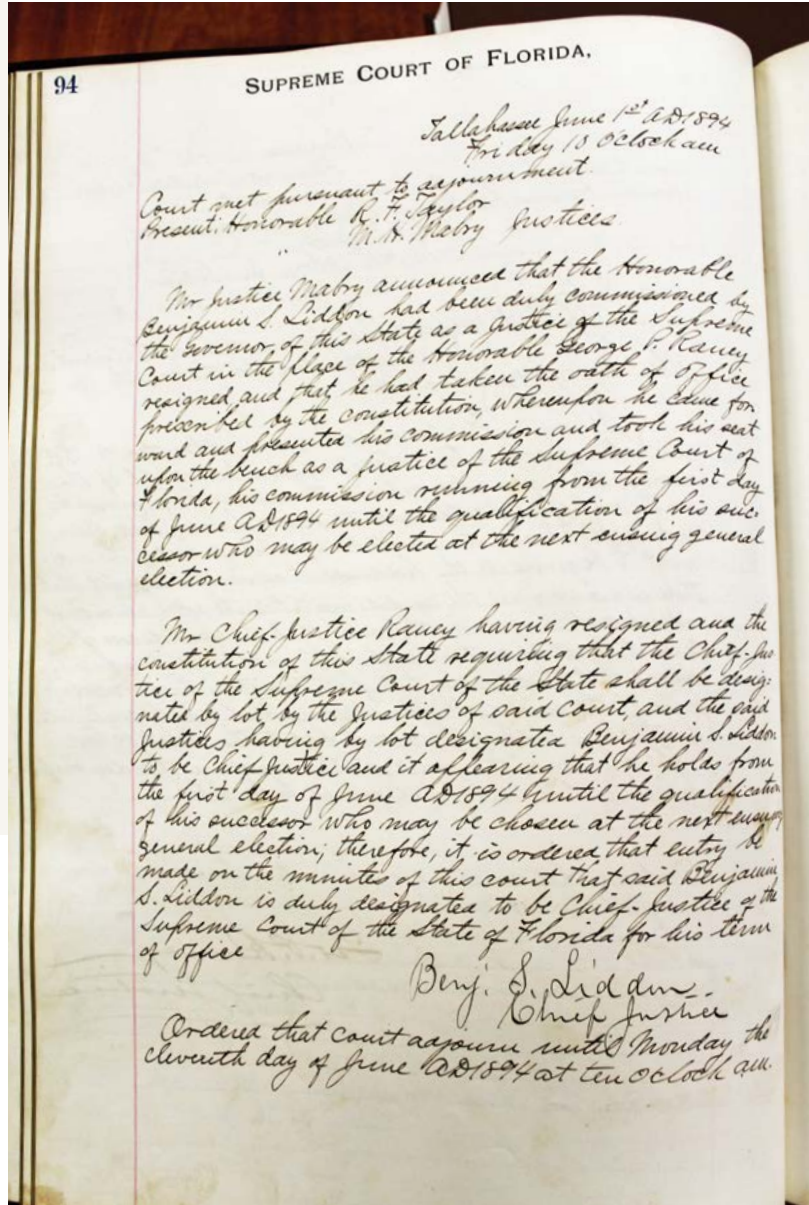 94
SUPREME COURT OF FLORIDA,
Tallahassee June 1st AD1894
Friday 10 OClock am
Court met pursuant to adjournment.
Present: Honorable R. F. Taylor
" M. H. Mabry Justices.
Mr Justice Mabry announced that the Honorable
Benjamin S. Liddon had been duly commissioned by
the Governor of this State as a Justice of the Supreme
Court in the place of the Honorable George P. Raney
resigned and that he had taken the oath of office
prescribed by the constitution, whereupon he came for
ward and presented his commission and took his seat
upon the bench as a Justice of the Supreme Court of
Florida, his commission running from the first day
of June AD1894 until the qualification of his suc-
cessor who may be elected at the next ensuing general
election.
Mr Chief-Justice Raney having resigned and the
constitution of this State requiring that the Chief-Jus
tice of the Supreme Court of the State shall be desig-
nated by lot, by the Justices of said Court, and the said
Justices having by lot designated Benjamin S. Liddon
to be Chief Justice and it appearing that he holds from
the first day of June AD1894 until the qualification
of his successor who may be chosen at the next ensuing
general election; therefore, it is ordered that entry be
made on the minutes of this court that said Benjamin
S. Liddon is duly designated to be Chief-Justice of the
Supreme Court of the State of Florida for his term
of office
Benj. S. Liddon
Chief Justice
Ordered that Court adjourn until Monday the
eleventh day of June AD1894 at ten OClock am.